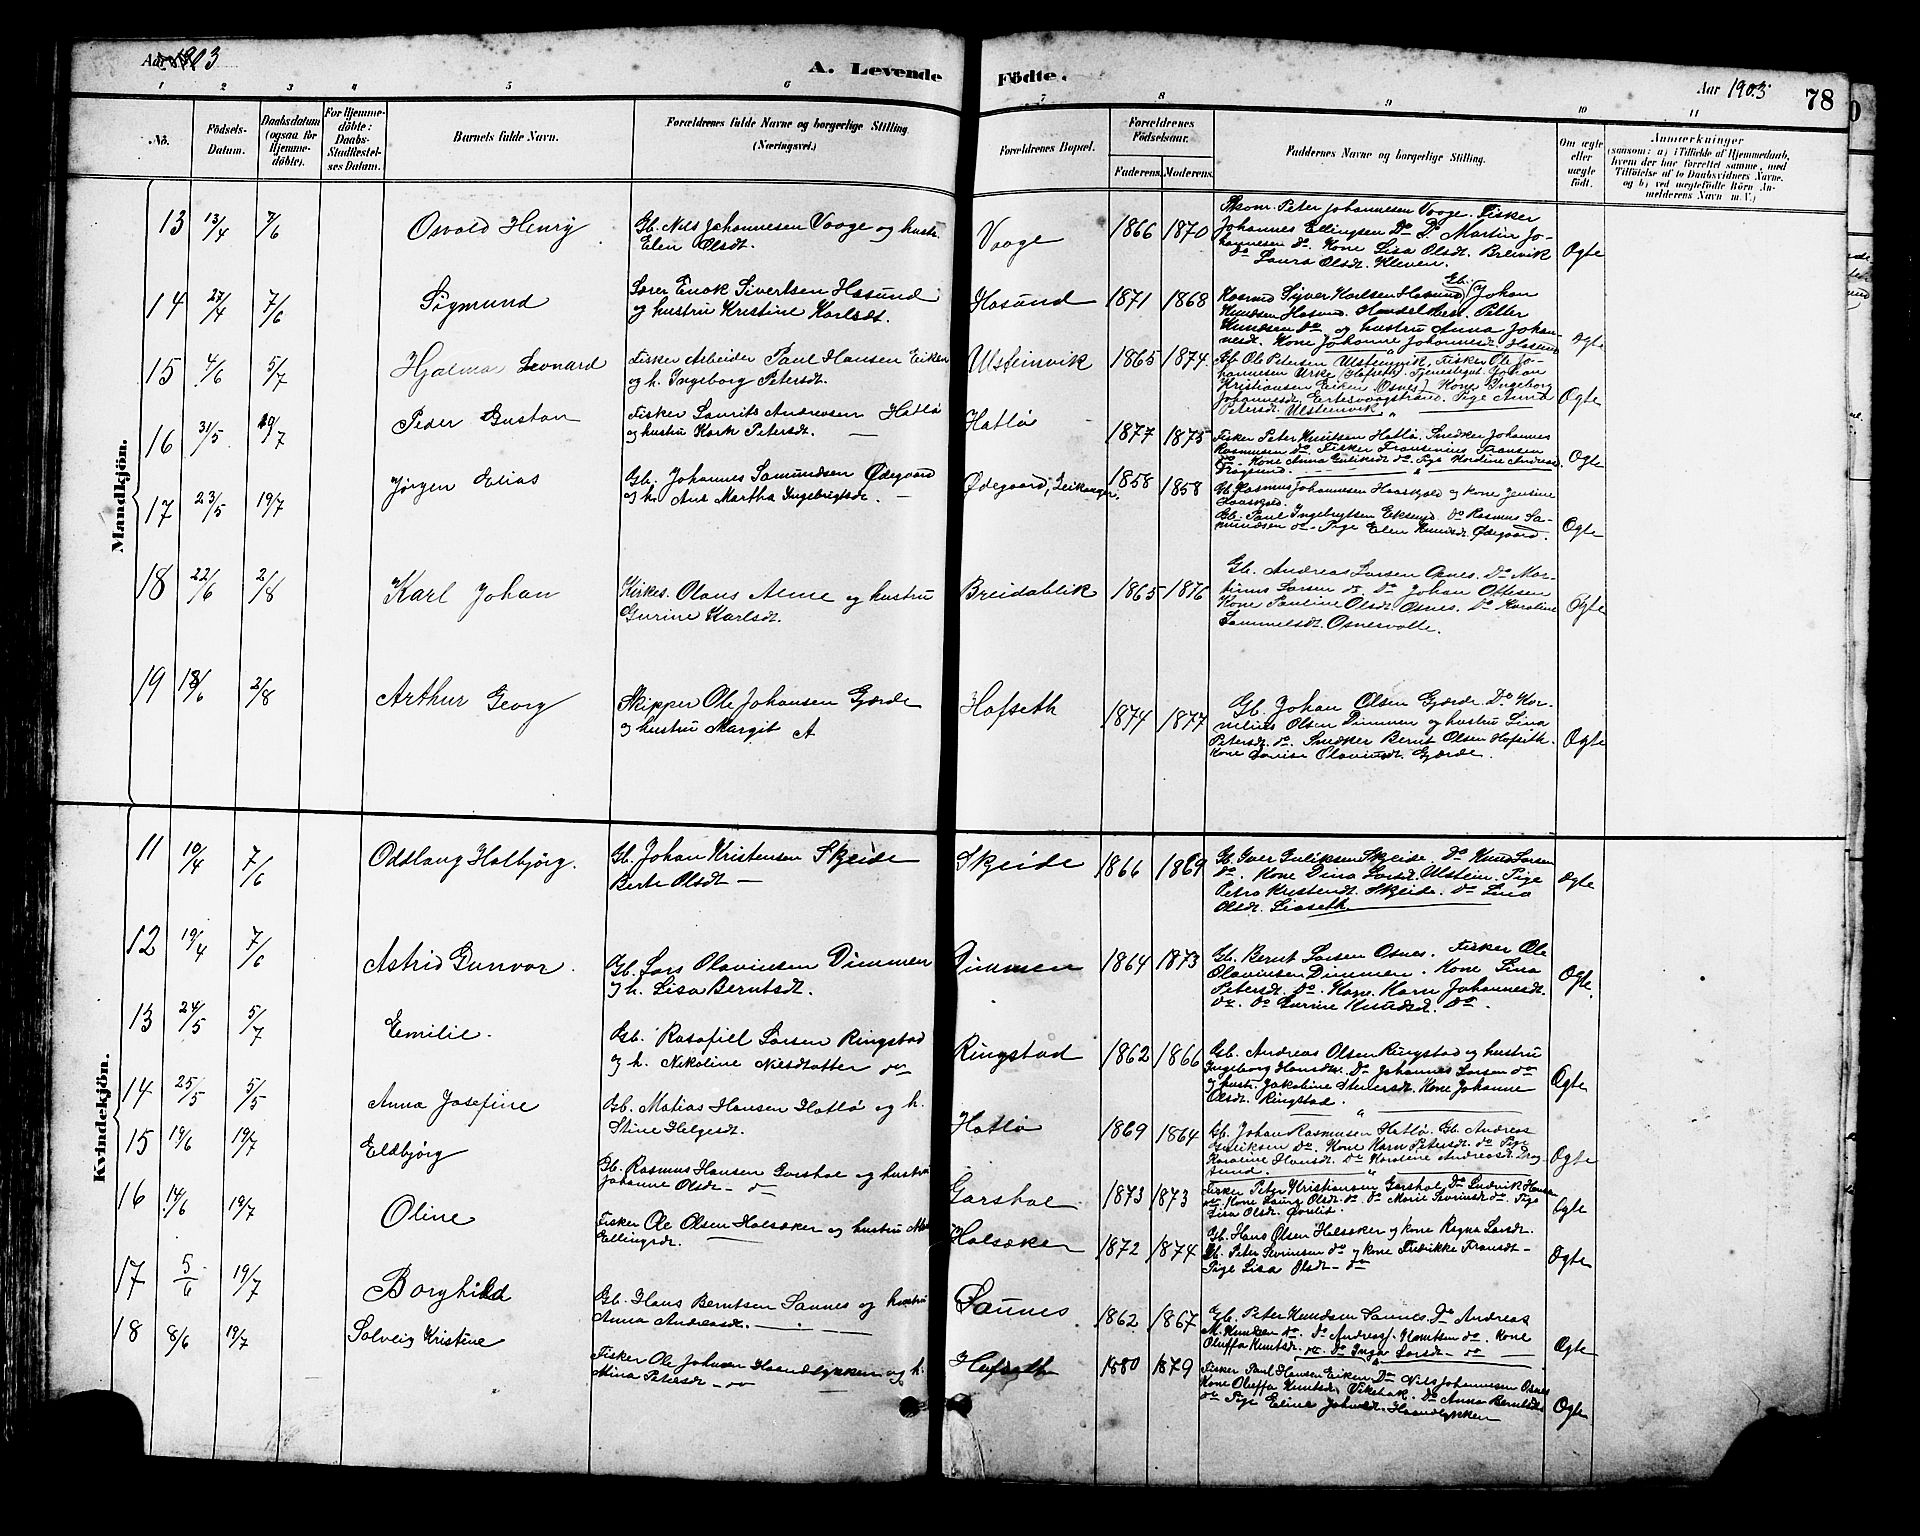 Aar 1903
A. Levende Födte.
Aar 1903
78
1 2 3 4 5 6 7 8 9 10 11
No.
Födsels-Datum.
Daabsdatum (ogsaa for Hjemmedöbte).
For Hjemmedöbte: Daabs-Stadfæstelses Datum.
Barnets fulde Navn.
Forældrenes fulde Navne og borgerlige Stilling (Næringsvei.)
Forældrenes Bopæl.
Forældrenes Födselsaar.
Faderens. Moderens.
Faddernes Navne og borgerlige Stilling.
Om ægte eller uægte födt.
Anmærkninger
(saasom: a) i Tilfælde af Hjemmedaab,
hvem der har forrettet samme, med
Tilföielse af to Daabsvidners Navne,
og b) ved uægtefödte Börn An-
melderens Navn m. V.)
Mandkjön.
13 13/4 7/6 Osvald Henry
Gb. Nils Johannesen Vaage og hustr.
Elen Olsdt.
Vaage 1866 1870
Peter Johannesen Vaage. Fisker
Johannes Ellingsen Do Do Martin Jo-
hannesen do. Kone Lisa Olsdt. Breivik
do Laura Olsdt. Kleven.
Ægte
14 27/4 7/6 Sigmund
Enok Sivertsen Hasund
og hustru Kristine Karlsdt.
Hasund 1871 1868
Sjver Karlsen Hasund Gb. Johan
Knudsen Hasund. Petter
Knudsen do og hustru Anna Johan-
nesdt. Kone Johanne Johannesdt Hasund
Ægte
15 4/6 5/7 Hjalmar Leonard
Fisker Arbeider Paul Hansen Eiken
og h. Ingeborg Petersdt.
Ulsteinvik 1865 1874
Gb. Ole Petersen Ulsteinvik, Fisker Ole Jo-
hannesen Urke (Hofseth). Johan
Kristiansen Eiken (Osnes) Kone Ingeborg
Johannesdt. Pige Anna
Petersdt. Ulsteinvik
Ægte
16 31/5 19/7 Peder Gustav
Fisker Laurits Andreasen Hatlø
og hustru Petersdt. —
Hatlø 1877 1875
Fisker Peter Knutsen Hatlø. Snedker Johannes
Rasmusen do Fisker Fransen
do - Kone Anna do. Pige Andreasdt
Dragsund.
Ægte
17 23/5 19/7 Jørgen Elias
Gb. Johannes Samundsen Ødegaard
og h. Ane Martha Ingebrigtsdt. —
Ødegaard, Leikanger. 1858 1858
Gb. Rasmus Johannesen Haaskjold og kone Jensine
Haaskjold.
Gb. Paul Ingebrigtsen Eiksund. do Rasmus Sa-
mundsen do - Pige Elen Knudsdt. Ødegaard.
Ægte
18 22/6 2/8 Karl Johan
Kirkes. Olaus Alme og hustru
Gurine Karlsdt.
Breidablik 1865 1876
Gb. Andreas Larsen Osnes. Do Mar-
tinus Larsen do Do Johan Ottesen
Kone Pauline Olsdt. Osnes. Do Karoline
Samuelsdt. Osnesvolle.
Ægte
19 18/6 2/8 Arthur Georg
Skipper Ole Johansen Gjærde
og hustru Margit A
Hofseth 1874 1877
Gb. Johan Olsen Gjærde. Do Kor-
nelius Olsen Dimmen og hustru Lina
Petersdt. do. Snedker Bernt Olsen Hofseth.
Kone Lovise Olavusdt. Gjærde.
Ægte
Kvindekjön.
11 10/4 7/6 Oddlaug Halbjörg.
Gb. Johan Kristensen Skeide
Berte Olsdt —
Skeide 1866 1869
Gb. Iver Skeide. do Knud Larsen
do. Kone Dina Larsdt. Ulstein. Pige
Petra Kristensdt. Skeide. do Lina
Olsdt. Liaseth.
Ægte
12 19/4 7/6 Astrid Gunvor.
Gb. Lars Olavinsen Dimmen
og h. Lisa Berntsdt.
Dimmen 1864 1873
Gb. Bernt Larsen Osnes. Fisker Ole
Olavinsen Dimmen. Kone Lina
Petersdt. Do. Kone Karn Johannesdt.
do. do Gurine Knudsdt. do.
Ægte.
13 24/5 5/7 Emilie.
Gb. Rasafiel Larsen Ringstad
og h. Nikoline Nilsdtatter do
Ringstad 1862 1866
Gb. Andreas Olsen Ringstad og hustru
Ingeborg Hansdtr. Do Johannes Larsen do
og hustr. Jakobine Kone Johanne
Olsdt. Ringstad.
Ægte
14 25/5 5/5 Anna Josefine
Gb. Matias Hansen Hatlø og h.
Stine Helgesdt.
Hatlø 1869 1864
Gb. Johan Rasmusen Hatlø. Gb. Andreas
do. Kone Karn Petersdt. do Pige
Karoline Hansdt. Do Karoline Andreasdt. Drag-
sund.
Ægte
15 19/6 19/7 Eldbjørg
Gb. Rasmus Hansen Garshol og hustru
Johanne Olsdt - do
Garshol 1873 1873
Fisker Peter Kristiansen Garshol Do Ludvik Hansen
do. Kone Laura Olsdt. do. do Marie do. Pige
Lisa Olsdt.
Ægte
16 14/6 19/7 Oline
Fisker Ole Olsen Halsøker og hustru
Ellingsdt.
Halsøker 1872 1874
Gb. Hans Olsen Halsøker og kone Ragna Larsdt.
Gb. Peter Severinsen do og kone Fredrikke Fransdt -
Pige Lisa Olsdt - do
Ægte
17 5/6 19/7 Borghild
Gb. Hans Berntsen Saunes og hustru
Anna Andreasdt.
Saunes 1862 1867
Gb. Peter Knudsen Saunes. Do Andreas
M. Knudsen do. do Andreas J. Knutsen do. Kone
Oluffa Knutsdt. do. do Inga Larsdt - do
Ægte
18 8/6 19/7 Solveig Kristine
Fisker Ole Johnsen Haandlykken og h.
Mina Petersdt - do
Hofseth 1880 1879
Fisker Paul Hansen Eiken Do Nils Johannesen Osnes
Kone Oluffa Knutsdt. Vikebak. Do Anna Berntsdt
do Pige Eline Johnsdt. Haandlykken
Ægte